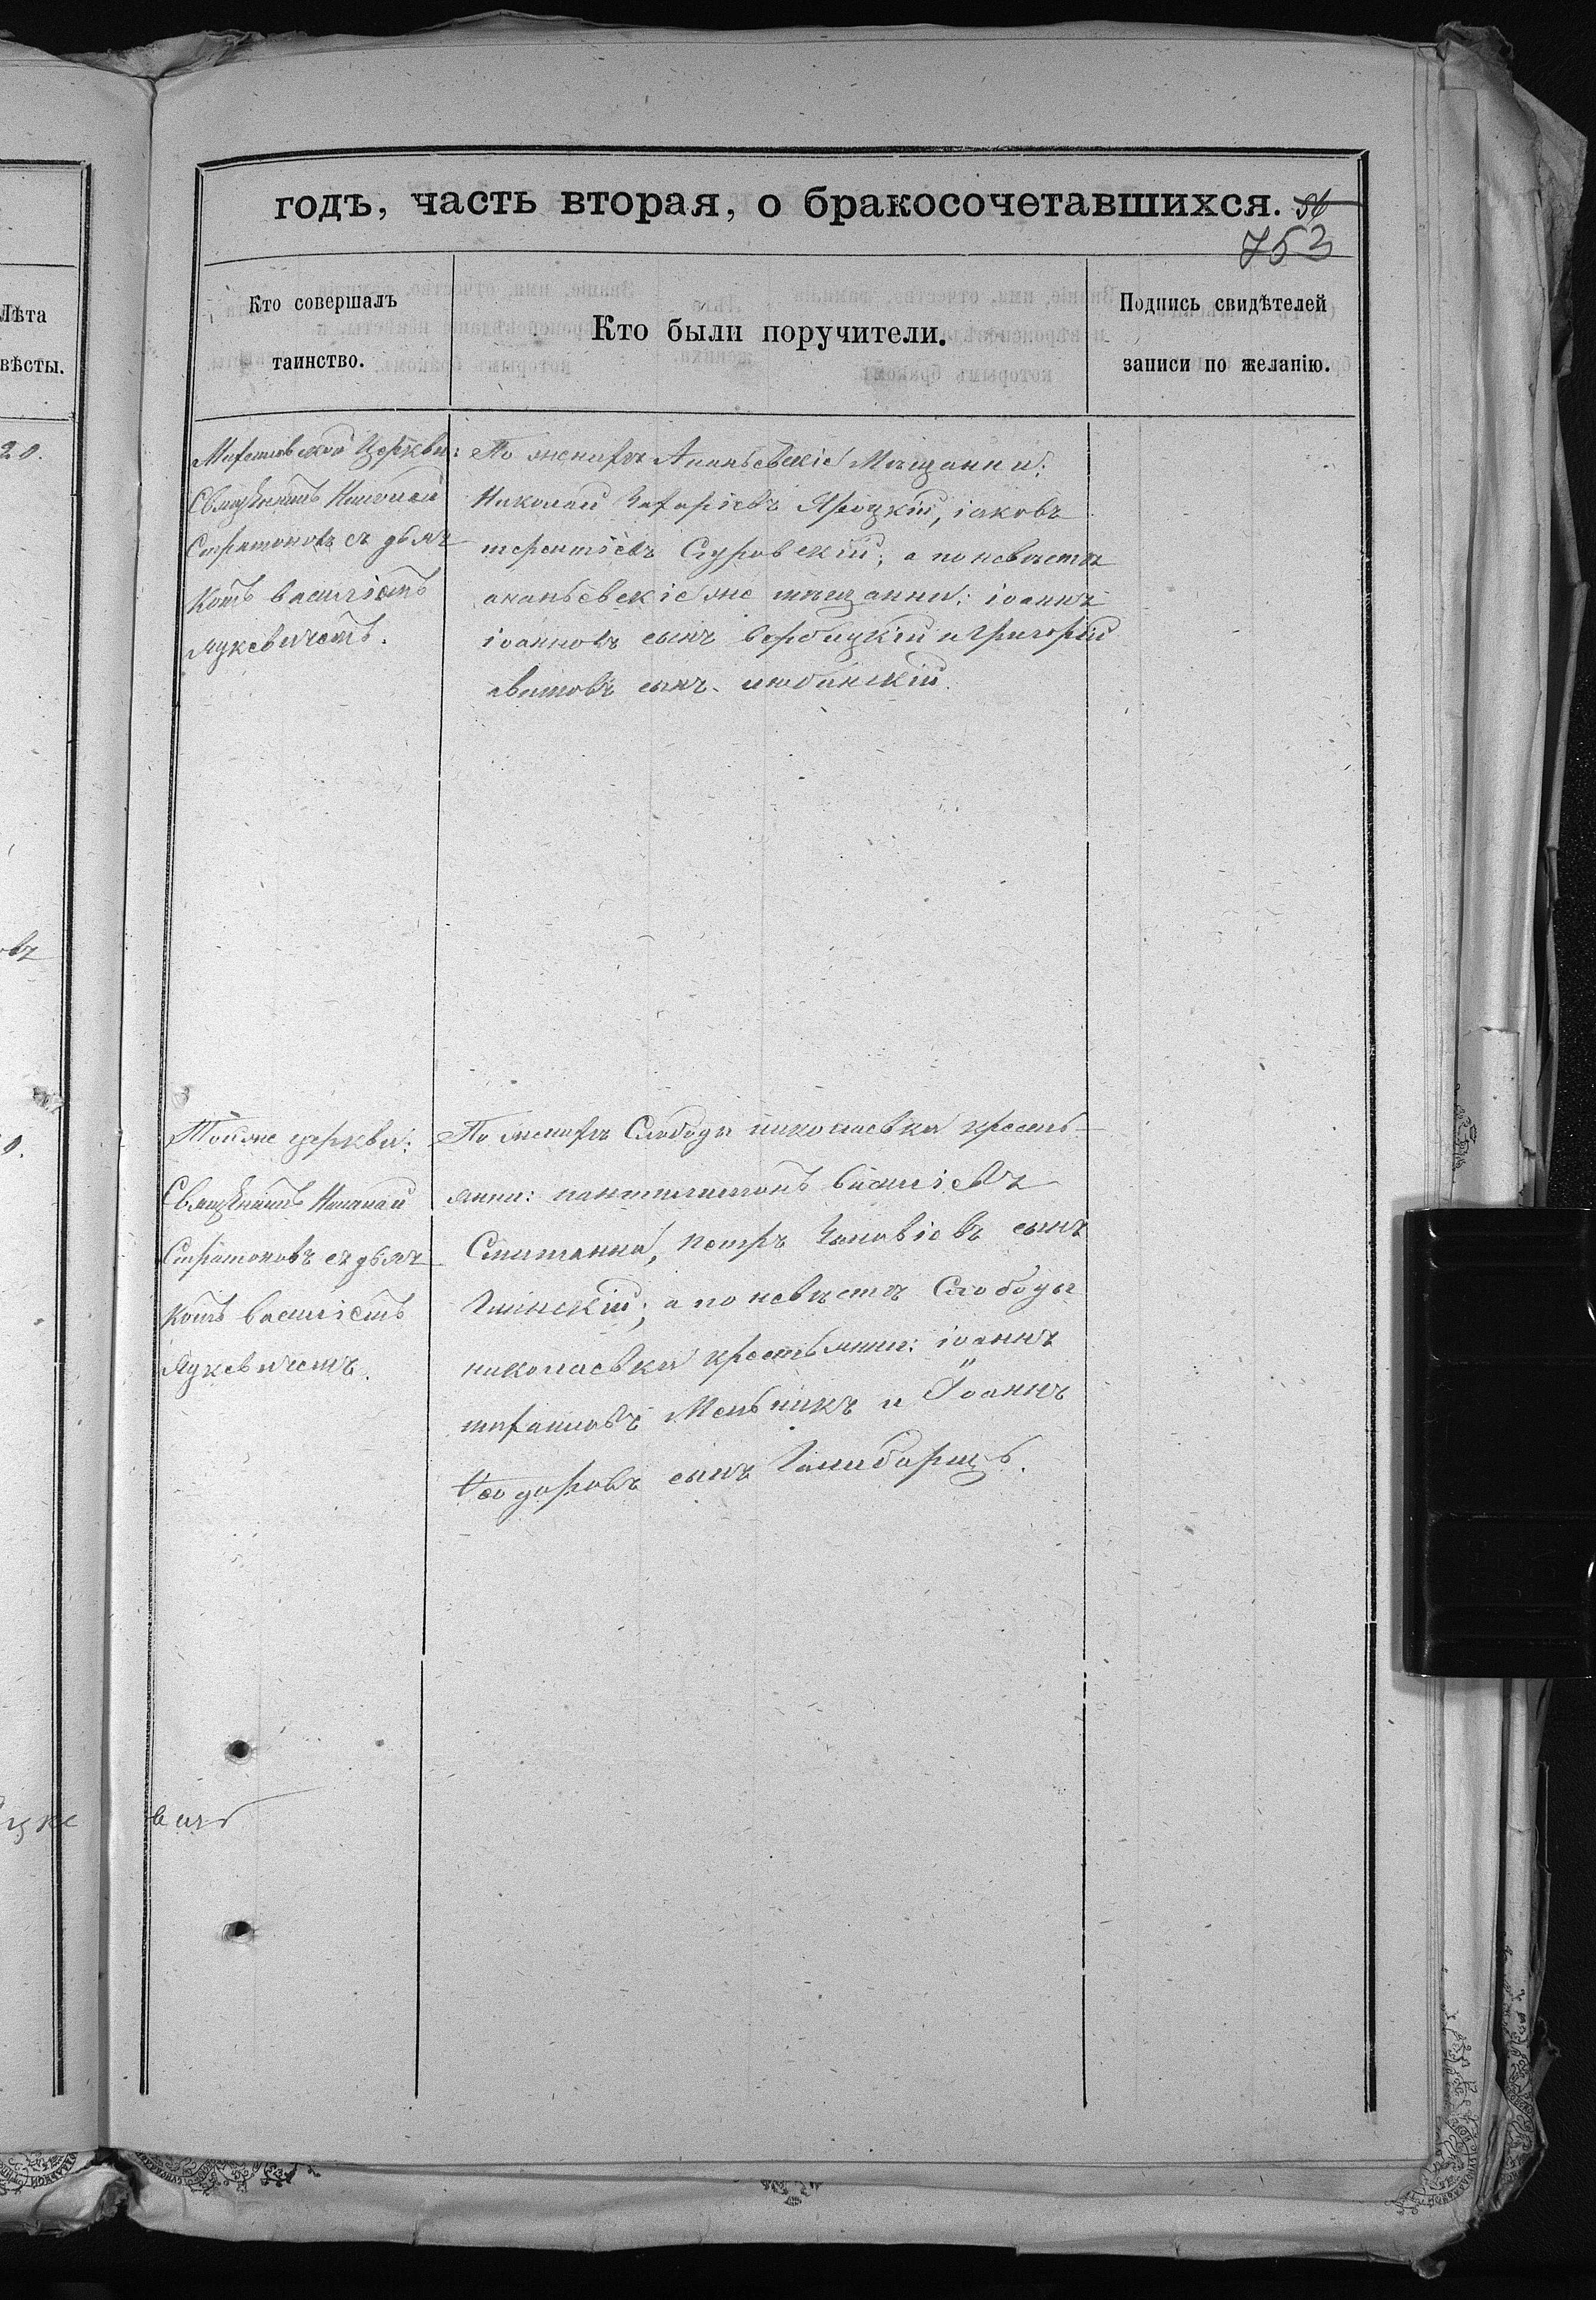 годъ, часть вторая, о бракосочетавшихся.
753
Лѣта
вѣсты.
Кто совершалъ
таинство.
Кто были поручители.
Подпись свидѣтелей
записи по желанію.
20.
Церкви:
Николай
Стратоновъ съ дьяч
комъ василіемъ
луксвичемъ.
По женихѣ Ананьевскіе Мѣщанни:
Николай Захаріевъ Яроцкій, іаковъ
терентіевъ Суровскій; а по невѣстѣ
ананьевскіе же мѣщанни: іоаннъ
іоанновъ сынъ вербицкій и Григорій
сынъ любинскій.
овъ
0.
Тойже церкви:
Николай
Стратоновъ съ дьяч
комъ василіемъ
Луксвичемъ.
По женихѣ Слободы николаевки кресть-
янни: пантилимонъ василіевъ
петръ сынъ
Глинскій; а по невѣстѣ Слободы
николаевки крестьянни: іоаннъ
Мельникъ и Іоаннъ
Ѳеодоровъ сынъ
вичъ